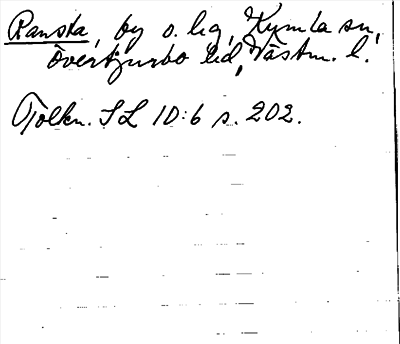 Ransta, by o. hg, Kumla sn,
Övertjurbo hd, Västm. l.
Tolkn. SL 10:6 s. 202.